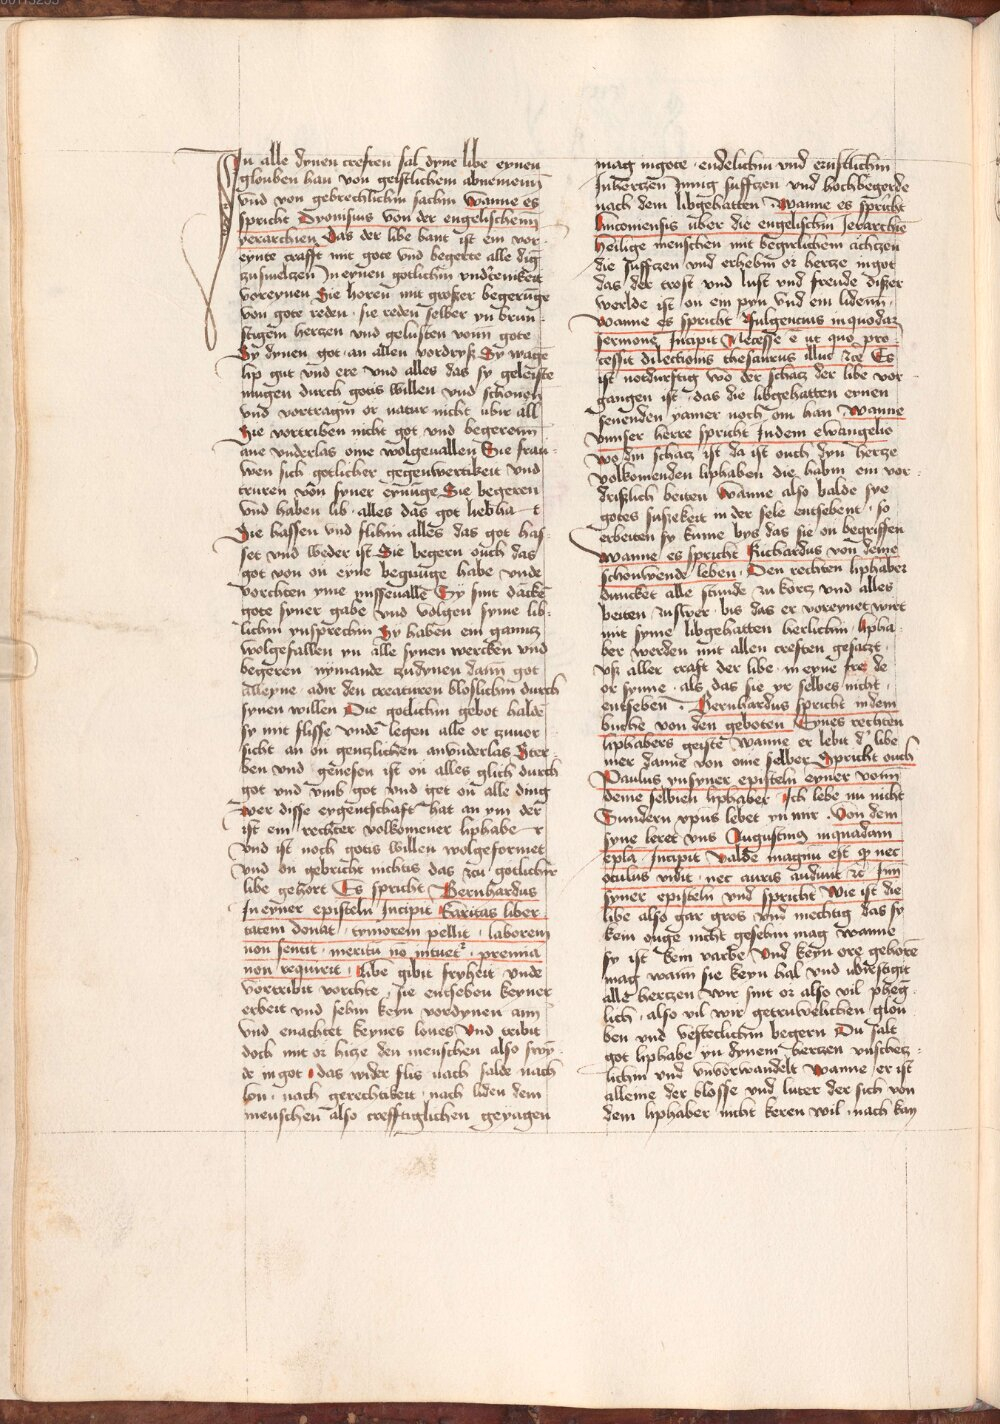 In alle dynen creften sal dyne libe eynen
glouben han von geistlichem abnemenn
vnd von gebrechlichin sachin wanne es
spricht Dyonisius von der engelischenn
yerarchien Das der libe bant ist ein vor
eynte crafft mit gote vnd begerte alle dīg
zusmeltzen In eynen gotlichin
voreynen Sie horen mit groszer begerunge
von gote reden · sie reden selber yn brun
stigem hertzen vnd gelusten vonn gote
Sy dynen got · an allen vordrysz Sy wagē
lip gut vnd ere vnd alles das sy geleiste
mugen durch gotis willen vnd schonen
vnd vortragin or natur nicht ubir all
Sie vortriben nicht got vnd begerenn
ane vnderlas ome wolgeuallen Sie frau
wen sich gotlicher gegenwertikeit vnd
truren von syner Sie begeren
vnd haben lib · alles das got liebha t
Sie hassen vnd flihin alles das got has
set vnd weder ist Sie begern ouch das
got von on eyne begnuge habe vnde
vorchten yme Sy sint dācke
gote syner gabe vnd volgen syme lib
lichin ynsprechin Sy haben ein gantz
wolgefallen yn alle synen wercken vnd
begeren nymande zudynen dann got
alleyne · adir den creaturen bloslichin durch
synen willen Die gotlichin gebot haldē
sy mit flisse vnde legen alle or zuuor
sicht an on gentzlichen anvnderlas Ster
ben vnd genesen ist on alles glich durch
got vnd vmb got vnd yn got on alle ding
Wer disse eygentschaft hat an ym der
ist ein rechter volkomener liphabe r
vnd ist noch gotis willen wolgeformet
vnd on gebricht nichtis das zcu gotlichir
libe gehort Es spricht Bernhardus
In eyner epistelnn Incipit Karitas liber
tatem donat · tymorem pellit · laborem
non sentit · meritū nō intuet² · premia
non requirit · Libe gibit fryheit vnde
vortribit vorchte · sie entseben keyner
erbeit vnd sehin keyn vordynen ann
vnd enachtet keynes lones vnd tribit
doch mit or hitze den menschen also swy
de in got · das wider flis nach salde nach
lon · nach gerechtikeit · nach liden dem
menschen also crefftiglichen geyagen
mag ingote · endelichin vnd ernstlichin
Inhertzen Innig sufftzen vnd hochbegerde
nach dem libgehatten · Wanne es spricht
lincomensis uber die engelischin Ierarchie
Heilige menschen mit begirlichem achtzen
die sufftzen vnd erhebin or hertze ingot
das der trost vnd lust vnd freude diszer
werlde ist on ein pyn vnd ein lidenn
Wanne es spricht Fulgencius inquodaz
sermone Incipit Necesse ē ut quo pro
cessit dilectionis thesaurus illuc ⁊cē Es
ist notdurftig wo der schatz der libe vor
gangen ist · das die libgehatten einen
senenden yamer noch om han Wanne
vnnser herre spricht Indem ewangelio
wo din schatz ist da ist ouch dyn hertze
volkomenden liphaben die habin ein vor
drislich beiten Wanne also balde sye
gotes susekeit in der sele entsebent · so
erbeiten sy kume bys das sie on begriffen
Wanne es spricht Richardus von deme
schouwende leben · Den rechten liphaber
duncket alle stunde zu kortz vnd alles
beiten zuswer · bis das er voreynet wirt
mit syme libgehatten herlichin · lipha
ber werden mit allen creften gesatzt
vsz aller craft der libe · in eyne fre de
or synne · als das sie yr selbes nicht ·
entseben · Bernhardus spricht indem
buche von den geboten Eynes rechten
liphabers geiste Wanne er lebit d' libe
mer danne von ome selber Spricht ouch
Paulus ynsyner episteln eyner vonn
deme selbien liphaber Ich lebe nu nicht
Sundern xpus lebet yn mir · Von dem
syne leret vns Augustinus inquadam
epla · Incipit Valde magnū est q̄ nec
oculus vidit · nec auris audiuit ⁊c Inn
syner episteln vnd spricht Wie ist die
libe also gar gros vnd mechtig das sy
kein ouge nicht gesehin mag wanne
sy ist kein varbe Vnd keyn ore gehorē
mag wann sie keyn hal vnd
alle hertzen wir sint or also vil
lich · also vil wir getruwelichen glou
ben vnd vesteclichin begern Du salt
got liphabe yn dynem hertzen
lichin vnd vnvorwandelt wanne er ist
alleine der blosse vnd luter der sich von
dem liphaber nicht keren wil · nach kan